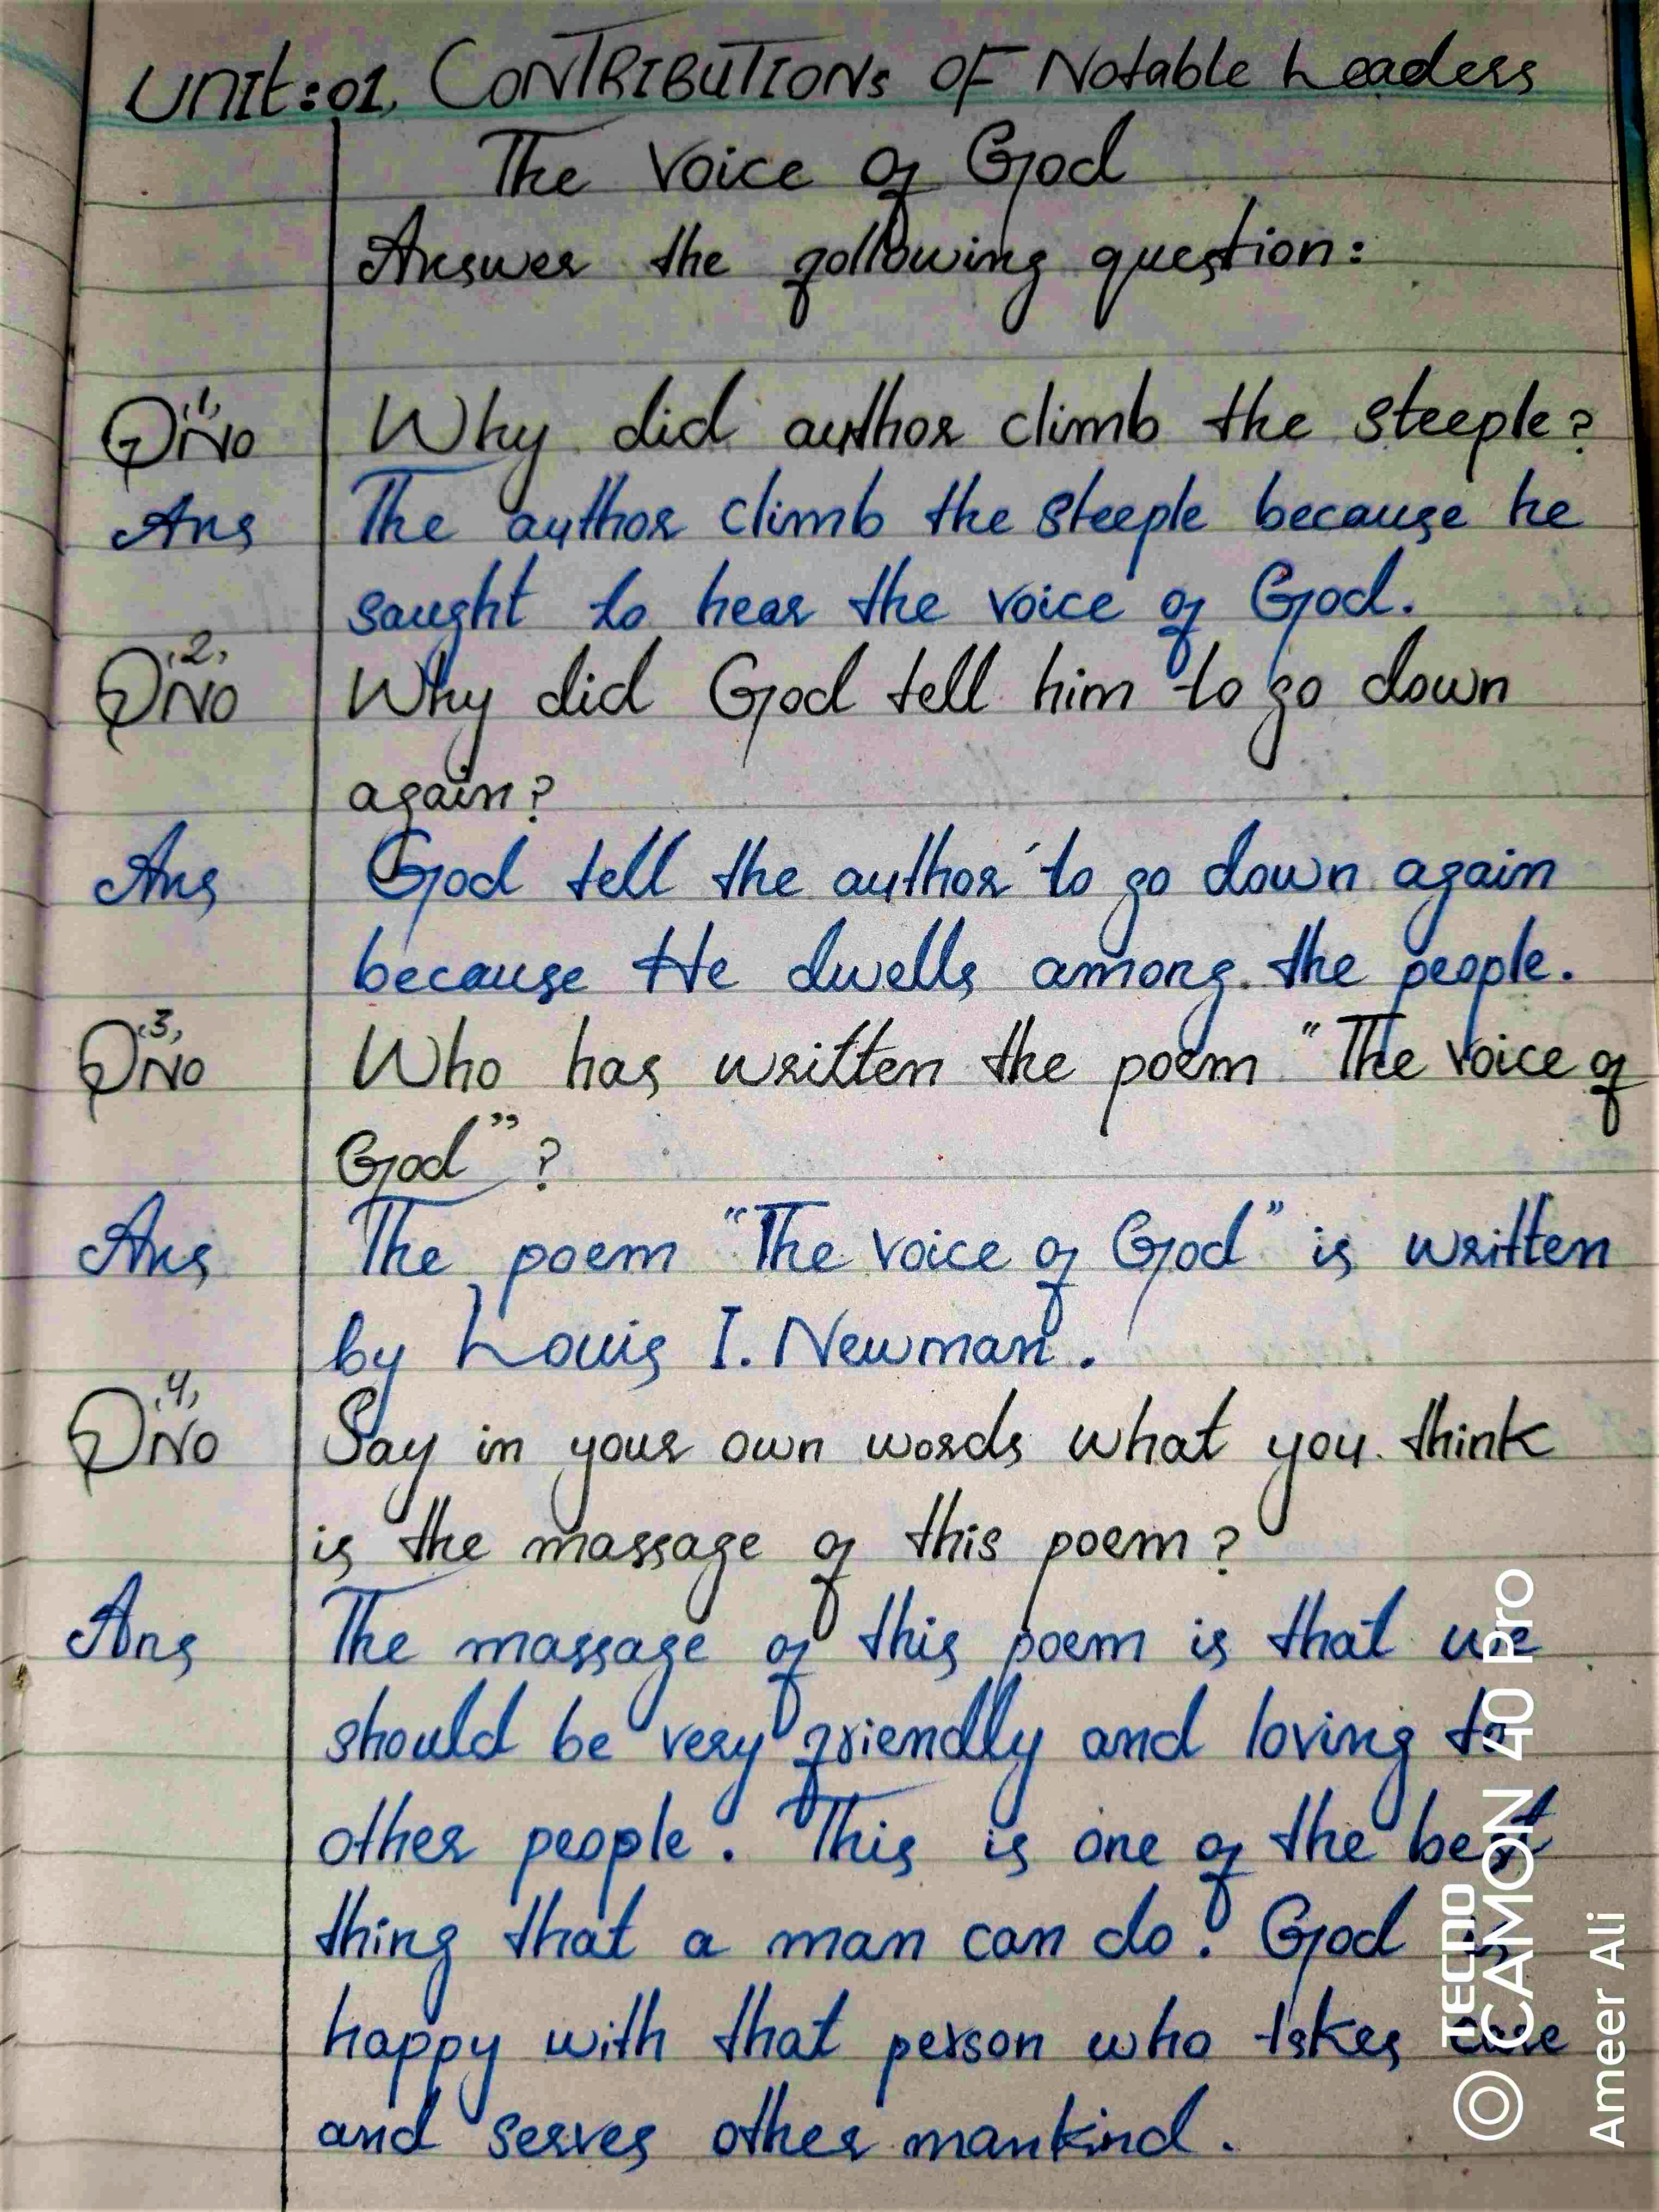 Unit:01, CONTRIBUTIONS OF Notable Leaders
The Voice of God
Answer the following question:
Q"1"No Why did author climb the steeple?
Ans The author climb the steeple because he
saught to hear the voice of God.
Q"2"No Why did God tell him to go down
again?
Ans God tell the author to go down again
because He dwells among the people.
Q"3"No Who has written the poem "The Voice of
God"?
Ans The poem "The Voice of God" is written
by Louis I. Newman.
Q"4"No Say in your own words what you think
is the massage of this poem?
Ans The massage of this poem is that we
should be very friendly and loving to
other people. This is one of the best
thing that a man can do. God is
happy with that person who takes care
and serves other mankind.
TECNO
CAMON 40 Pro
Ameer Ali